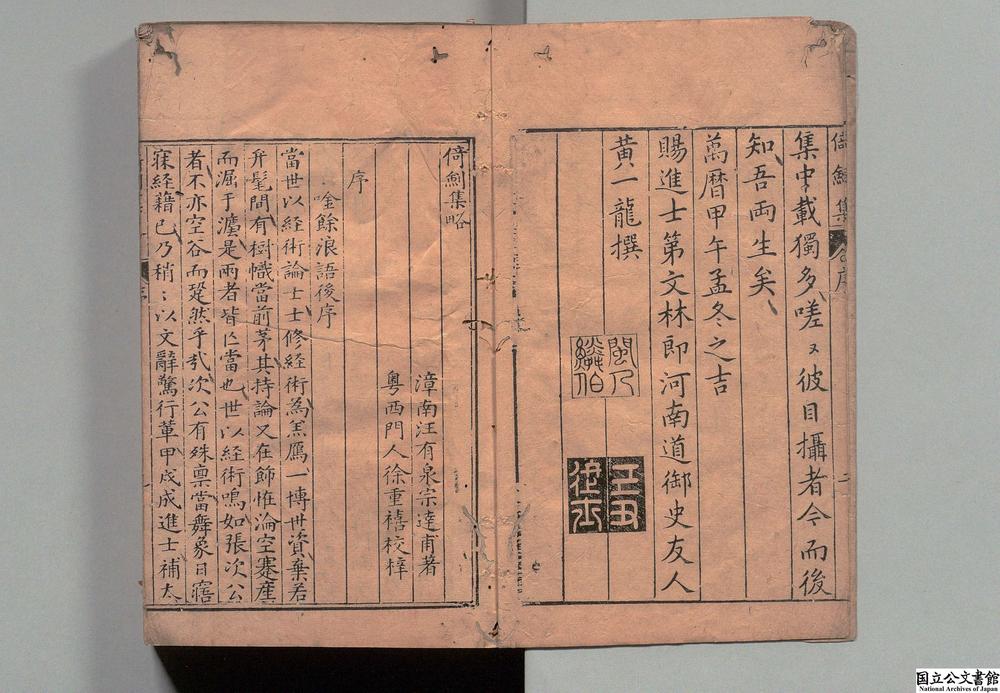 倚劍集
集中載獨多嗟〻彼目攝者今而後
知吾両生矣
萬曆甲午孟冬之吉
賜進士第文林郎河南道御史友人
黄一龍撰
倚劍集略
漳南汪有泉宗達甫著
粵西門人徐重禧校梓
序
唫餘浪語後序
當世以経術論士士修経術為羔鴈一博世資棄若
弁髦間有樹幟當前茅其持論又在飾帷淪空蹇產
而漏于灋是兩者皆亾當也世以経術鳴如張次公
者不亦空谷而跫然乎㢤次公有殊禀當舞象日窹
寐経藉已乃稍〻以文辭驚行軰甲戍成進士補太
国立公文書館
National Archives of Japan